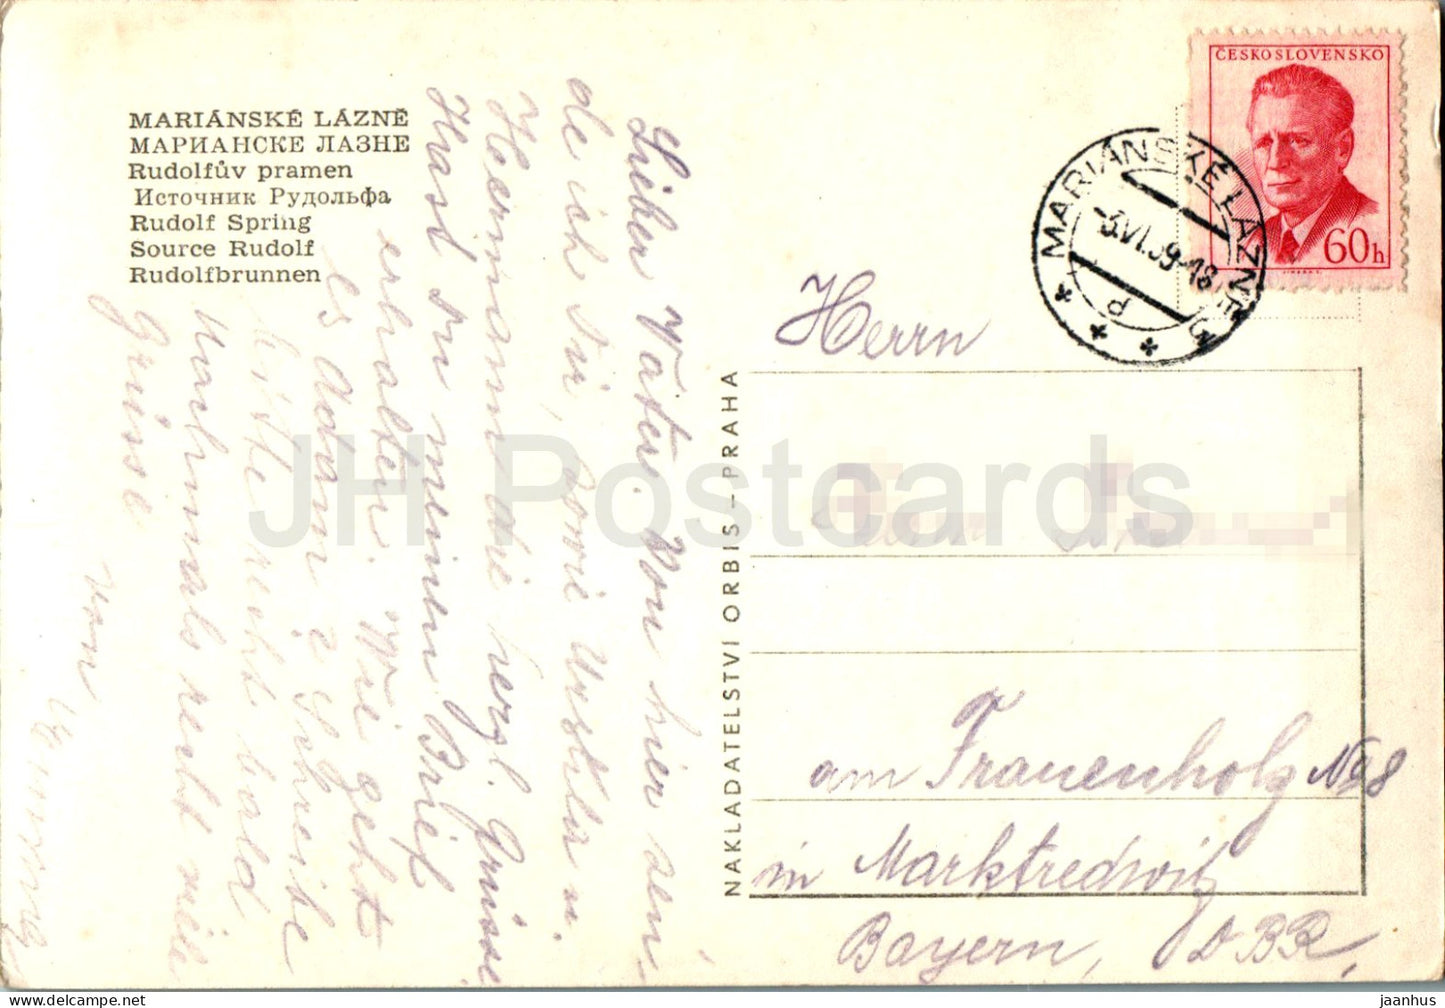 MARIÁNSKÉ LÁZNĚ
МАРИАНСКЕ ЛАЗНЕ
Rudolfův pramen
Источник Рудольфа
Rudolf Spring
Source Rudolf
Rudolfbrunnen
Lieber Vater. Von hier sen
de ich dir, sowie Urschla u.
Herrmann die herzl. Grüsse
Hast du meinen Brief
erhalten. Wie geht
es Adam? Schreibe
bitte recht bald
Nachmals recht viele
Grüsse
von
NAKLADATELSTVÍ ORBIS – PRAHA
ČESKOSLOVENSKO
60h
MARIÁNSKÉ LÁZNĚ 3
-3.VI.59-18
d
Herrn
am Frauenholz No 8
in Marktredwitz
Bayern, DBR.
JH Postcards
www.delcampe.net
jaanhus